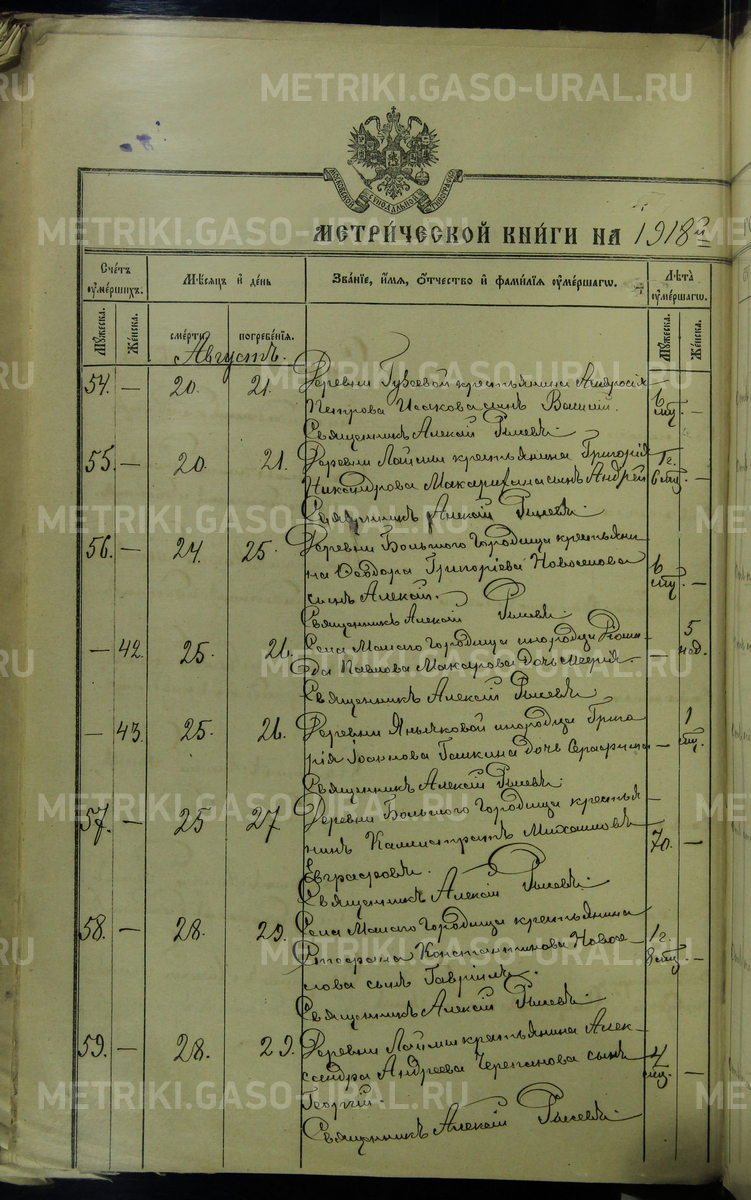 METRIKI.GASO-URAL.RU
МОСКОВСКОЙ СѴНОДАЛЬНОЙ ТИПОГРАФІИ
МЕТРИЧЕСКОЙ КНИГИ НА 1918й
Счетъ умершихъ.
Мѣсяцъ и день
Званіе, имя, отчество и фамилія умершаго.
Лѣта умершаго.
Мужеска.
Женска.
смерти
погребенія.
Мужеска.
Женска.
Августъ.
54. — 20. 21. Деревни крестьянина Амвросія 6
Петрова Исакова сынъ Василій. мѣс. —
Священникъ Алексій
55. — 20. 21. Деревни Лаймы крестьянина Григорія 1 г.
Никандрова сынъ Андрей 6 мѣс. —
Священникъ Алексій
56. — 24. 25. Деревни Большого Городища крестьяни-
на Ѳеодора Григоріева Новоселова 6
сынъ Алексій. мѣс. —
Священникъ Алексій
— 42. 25. 26. Села Малаго Городища инородца 5
Павлова Макарова дочь Марія. — нед.
Священникъ Алексій
— 43. 25. 26. Деревни инородца Григо- 1
рія Іоаннова дочь Серафима — мѣс.
Священникъ Алексій
57. — 25 27 Деревни Большого Городища крестья-
нинъ Каллистратъ Михаиловъ 70. —
Евграфовъ.
Священникъ Алексій
58. — 28. 29. Села Малаго Городища крестьянина 1 г.
Стефана Константинова Новосе- 8 мѣс. —
лова сынъ Гавріилъ.
Священникъ Алексій
59. — 28. 29. Деревни Лаймы крестьянина Алек- 4
сандра Андреева Черепанова сынъ мѣс. —
Георгій.
Священникъ Алексій